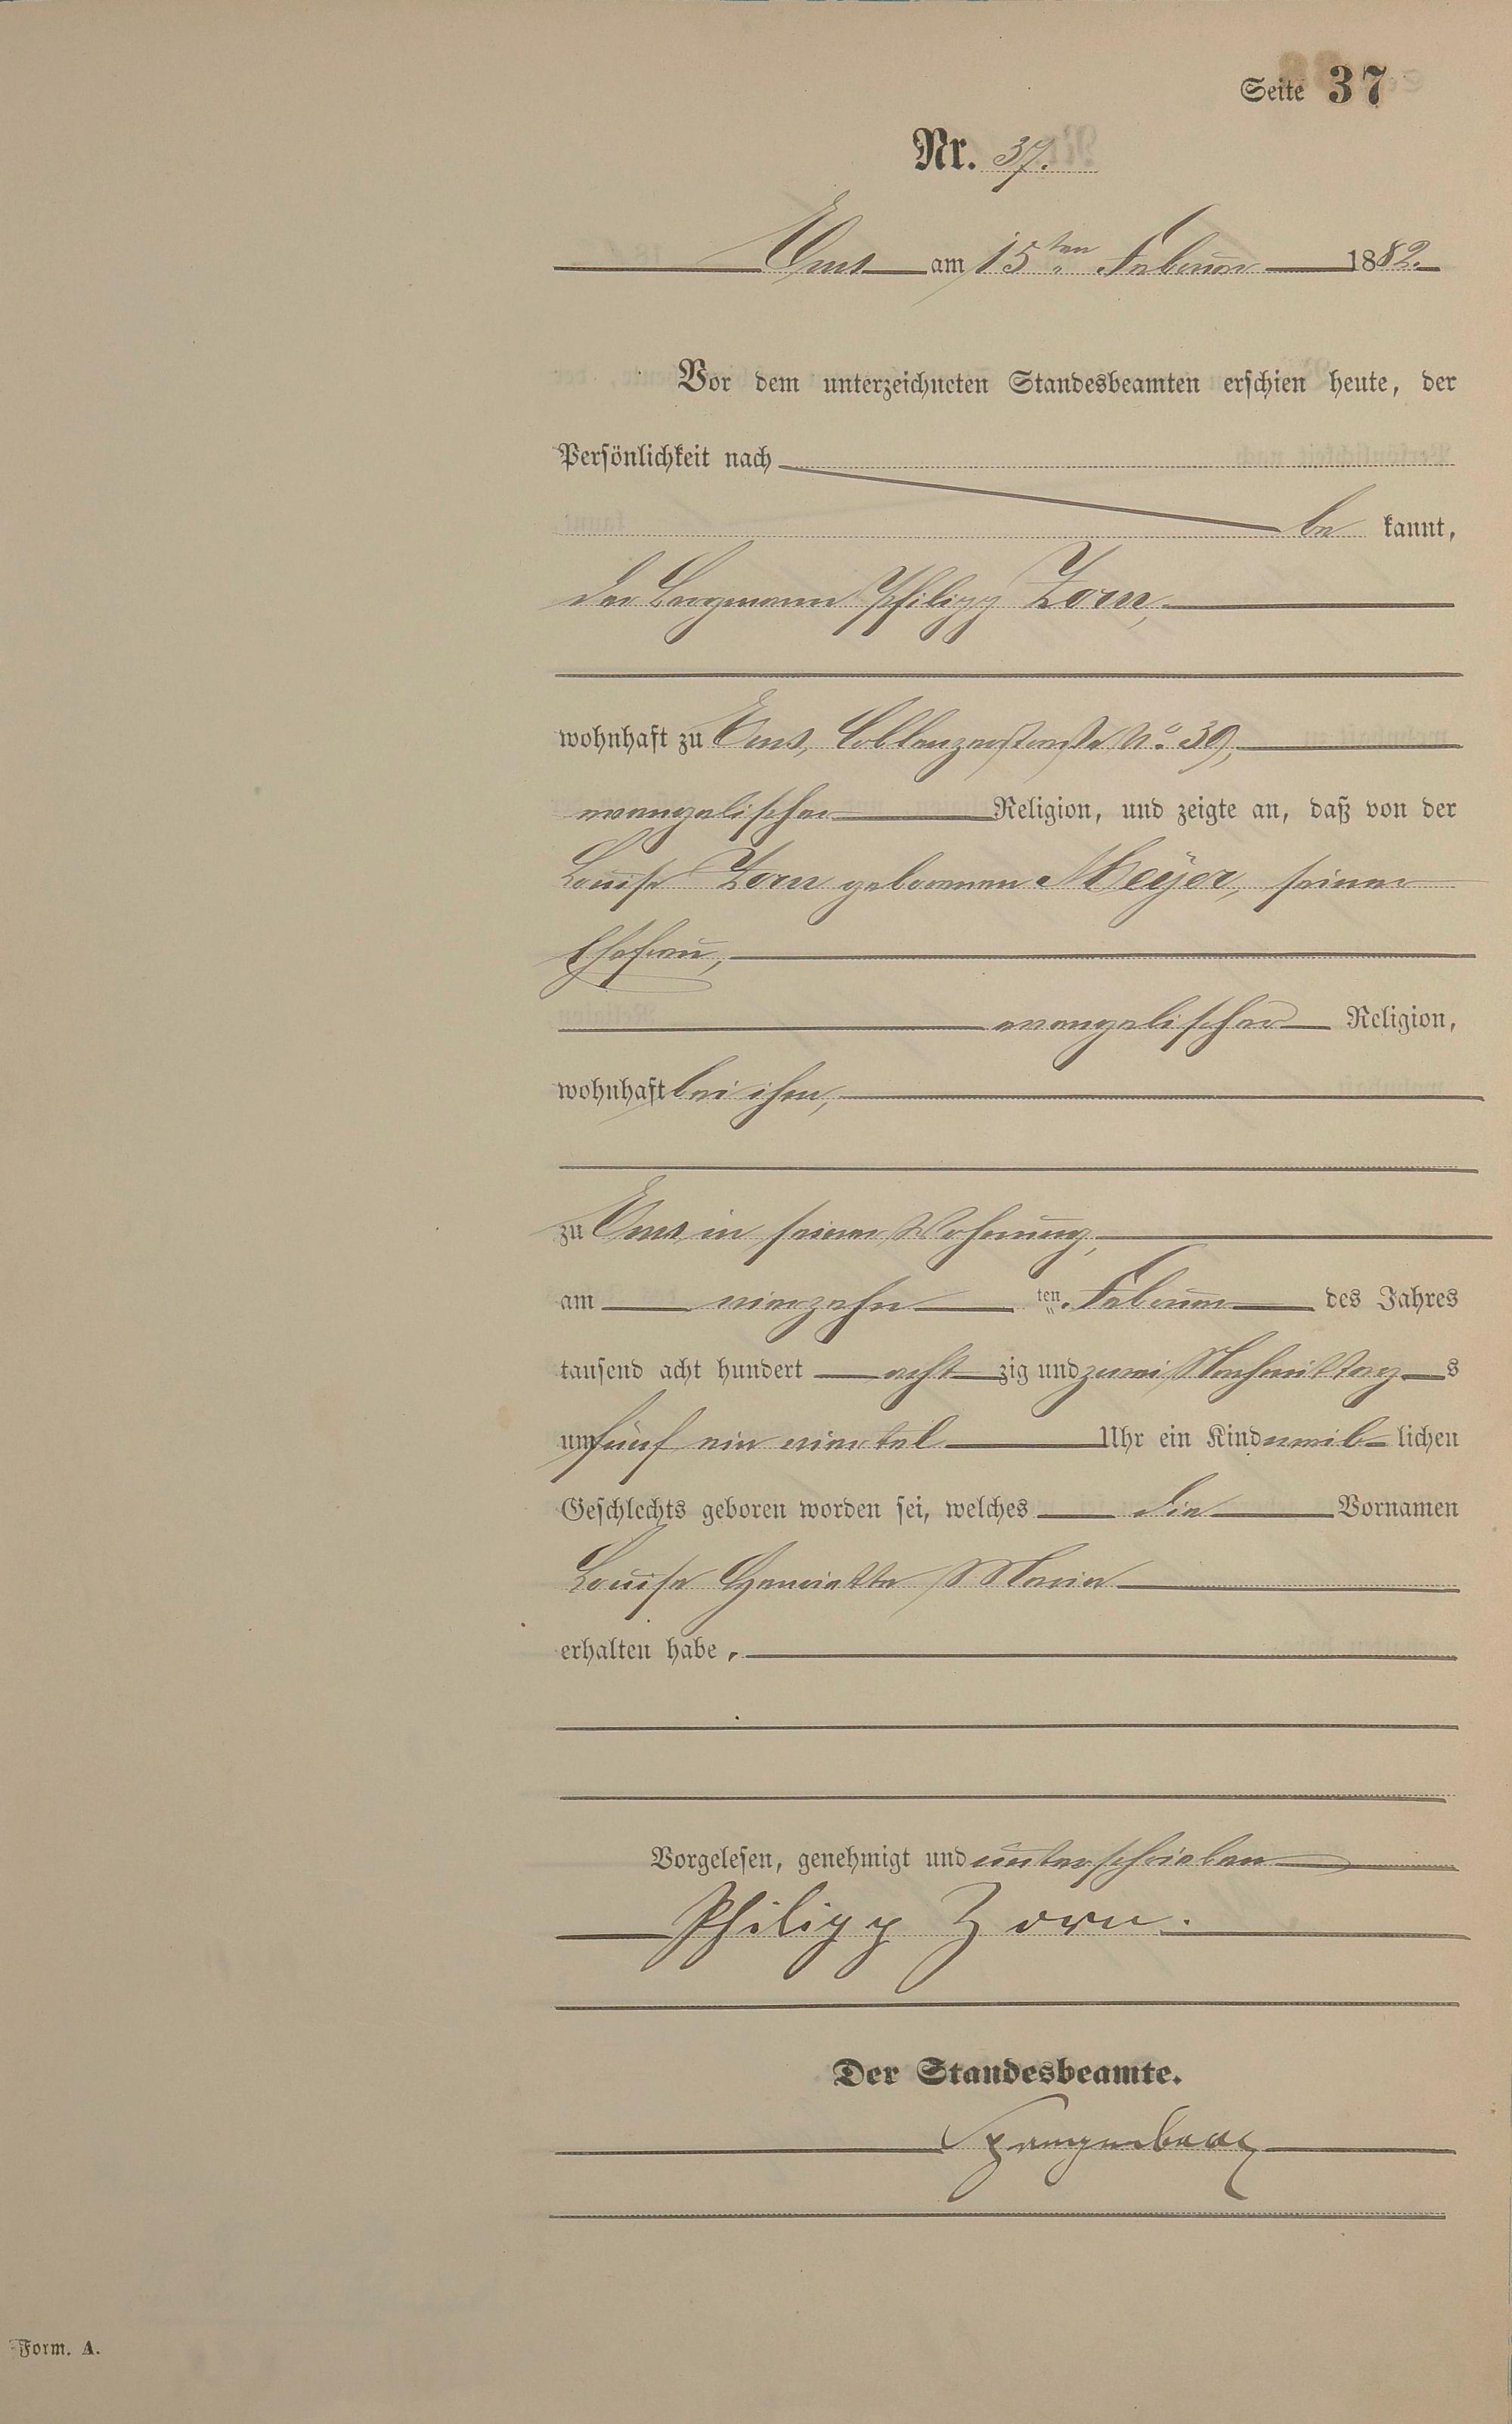 Seite 37
Nr. 37.
Ems am 15ten Februar 1882.
Vor dem unterzeichneten Standesbeamten erschien heute, der
Persönlichkeit nach
be kannt,
der Bergmann Philipp Zorn,
wohnhaft zu Ems, Coblenzerstraße No. 39,
evangelischer Religion, und zeigte an, daß von der
Louise Zorn geborenen Meÿer, seiner
Ehefrau,
evangelischer Religion,
wohnhaft bei ihm,
zu Ems in seiner Wohnung,
am vierzehn ten Februar des Jahres
tausend acht hundert acht zig und zwei Nachmittag s
um fünf ein viertel Uhr ein Kind weib lichen
Geschlechts geboren worden sei, welches die Vornamen
Louise Henriette Maria
erhalten habe.
Vorgelesen, genehmigt und unterschrieben
Philipp Zorn.
Der Standesbeamte.
Form. A.